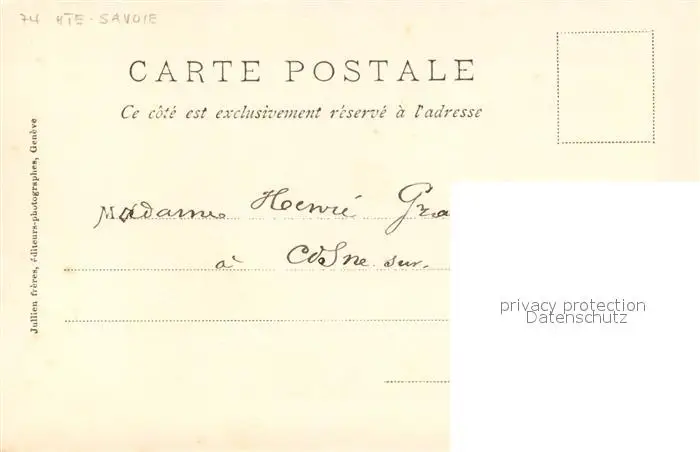 74 HTE-SAVOIE
CARTE POSTALE
Ce côté est exclusivement réservé à l'adresse
Jullien frères, éditeurs-photographes, Genève
Madame Henri Gra
à Cosne sur
privacy protection
Datenschutz